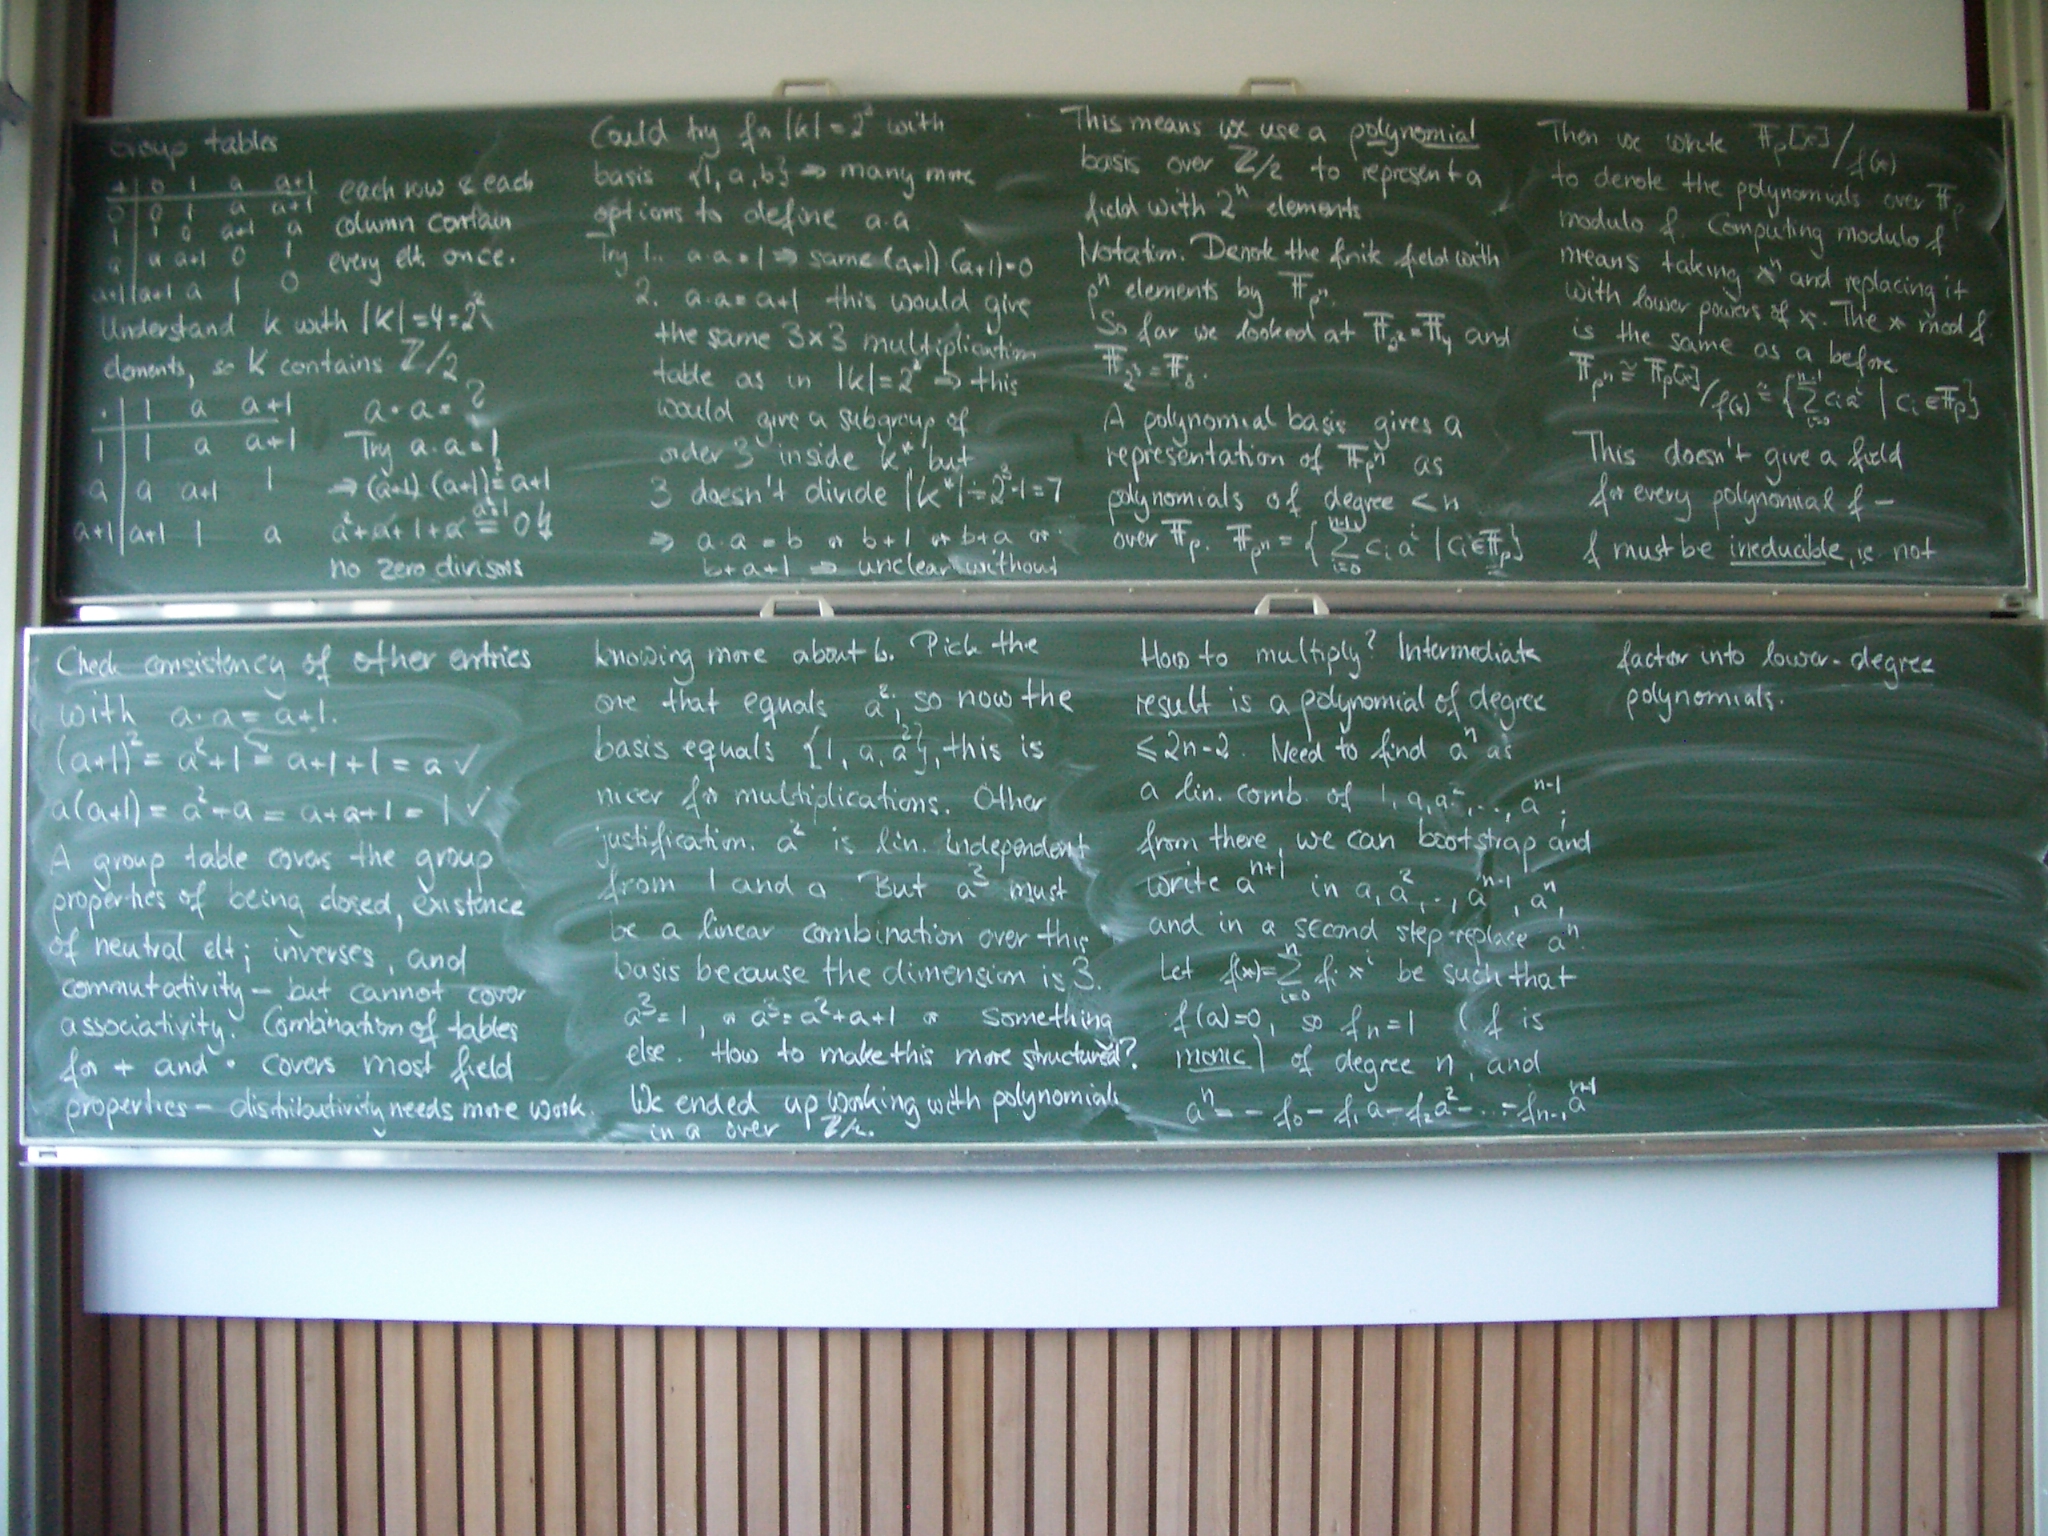 Group tables
+ | 0 1 a a+1 each row & each
0 | 0 1 a a+1 column contain
1 | 1 0 a+1 a
a | a a+1 0 1 every elt. once.
a+1 | a+1 a 1 0
Understand k with |k|=4=2²
elements, so k contains Z/2
· | 1 a a+1 a·a=?
1 | 1 a a+1 Try a·a=1
a | a a+1 1 ⇒ (a+1)·(a+1)= a+1
a+1 | a+1 1 a a²+a+1+a = 0 ↯
no zero divisors
Check consistency of other entries
with a·a = a+1.
(a+1)² = a²+1 = a+1+1 = a ✓
a(a+1) = a²+a = a+a+1 = 1 ✓
A group table covers the group
properties of being closed, existence
of neutral elt; inverses, and
commutativity – but cannot cover
associativity. Combination of tables
for + and · covers most field
properties – distributivity needs more work.
Could try for |k| = 2³ with
basis {1, a, b} ⇒ many more
options to define a·a
Try 1. a·a=1 ⇒ same (a+1)·(a+1)=0
2. a·a = a+1 this would give
the same 3×3 multiplication
table as in |k|=2² ⇒ this
would give a subgroup of
order 3 inside k* but
3 doesn't divide |k*| = 2³-1=7
⇒ a·a = b or b+1 or b+a or
b+a+1 ⇒ unclear without
knowing more about b. Pick the
one that equals a², so now the
basis equals {1, a, a²}, this is
nicer for multiplications. Other
justification. a² is lin. independent
from 1 and a. But a³ must
be a linear combination over this
basis because the dimension is 3.
a³=1, or a³=a²+a+1 or something
else. How to make this more structured?
We ended up working with polynomials
in a over Z/2.
This means we use a polynomial
basis over Z/2 to represent a
field with 2ⁿ elements
Notation. Denote the finite field with
pⁿ elements by 𝔽_pⁿ.
So far we looked at 𝔽_2²=𝔽_4 and
𝔽_2³=𝔽_8.
A polynomial basis gives a
representation of 𝔽_pⁿ as
polynomials of degree < n
over 𝔽_p. 𝔽_pⁿ = { ∑_{i=0}^{n-1} c_i a^i | c_i ∈ 𝔽_p}
How to multiply? Intermediate
result is a polynomial of degree
≤ 2n-2. Need to find aⁿ as
a lin. comb. of 1, a, a², ..., a^{n-1};
from there, we can bootstrap and
write a^{n+1} in a, a², .., a^{n-1}, aⁿ,
and in a second step replace aⁿ.
Let f(x)=∑_{i=0}^{n} f_i x^i be such that
f(a)=0, so f_n=1 (f is
monic) of degree n, and
aⁿ = -f_0 - f_1 a - f_2 a² - ... - f_{n-1} a^{n-1}
Then we write 𝔽_p[x]/f(x)
to denote the polynomials over 𝔽_p
modulo f. Computing modulo f
means taking xⁿ and replacing it
with lower powers of x. The x mod f
is the same as a before
𝔽_pⁿ ≅ 𝔽_p[x]/f(x) ≅ { ∑_{i=0}^{n-1} c_i a^i | c_i ∈ 𝔽_p}
This doesn't give a field
for every polynomial f –
f must be irreducible, i.e. not
factor into lower-degree
polynomials.